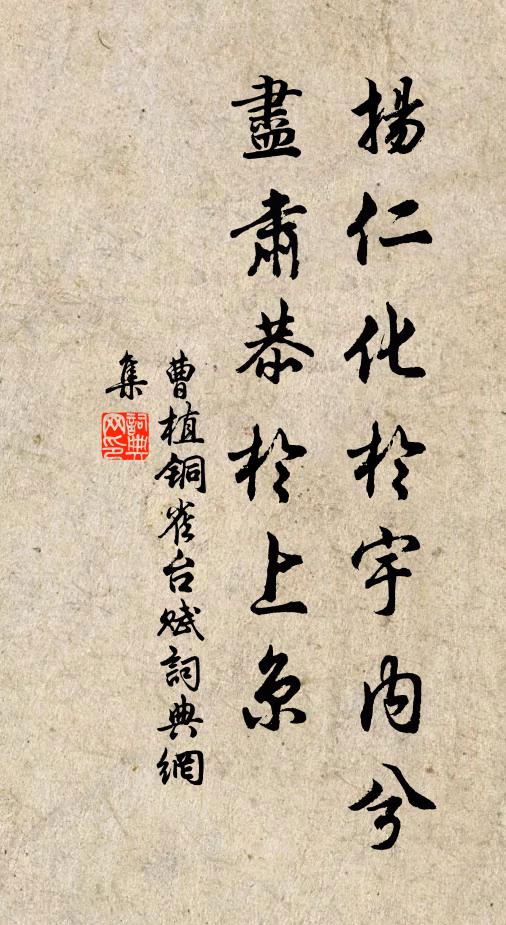 揚仁化於宇内兮
盡肅恭於上京
曹植铜雀台赋詞典網
集
詞典
网印